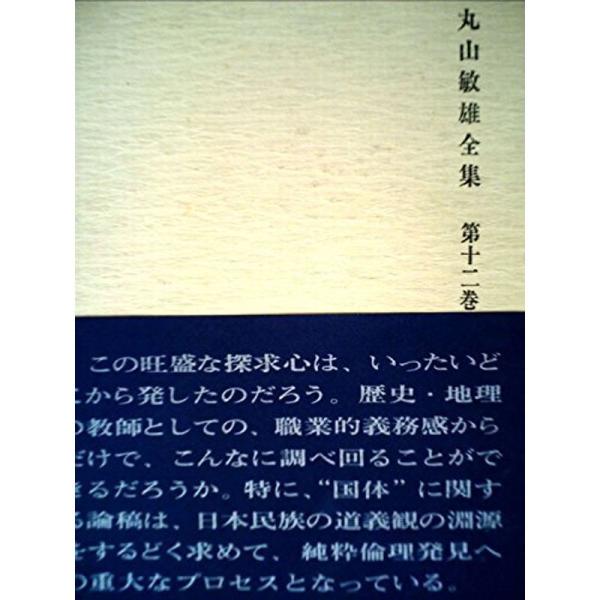 丸山敏雄全集 第十二巻
この旺盛な探求心は、いったいど
こから発したのだろう。歴史・地理
の教師としての、職業的義務感から
だけで、こんなに調べ回ることがで
きるだろうか。特に、“国体”に関す
る論稿は、日本民族の道義観の淵源
をするどく求めて、純粋倫理発見へ
の重大なプロセスとなっている。